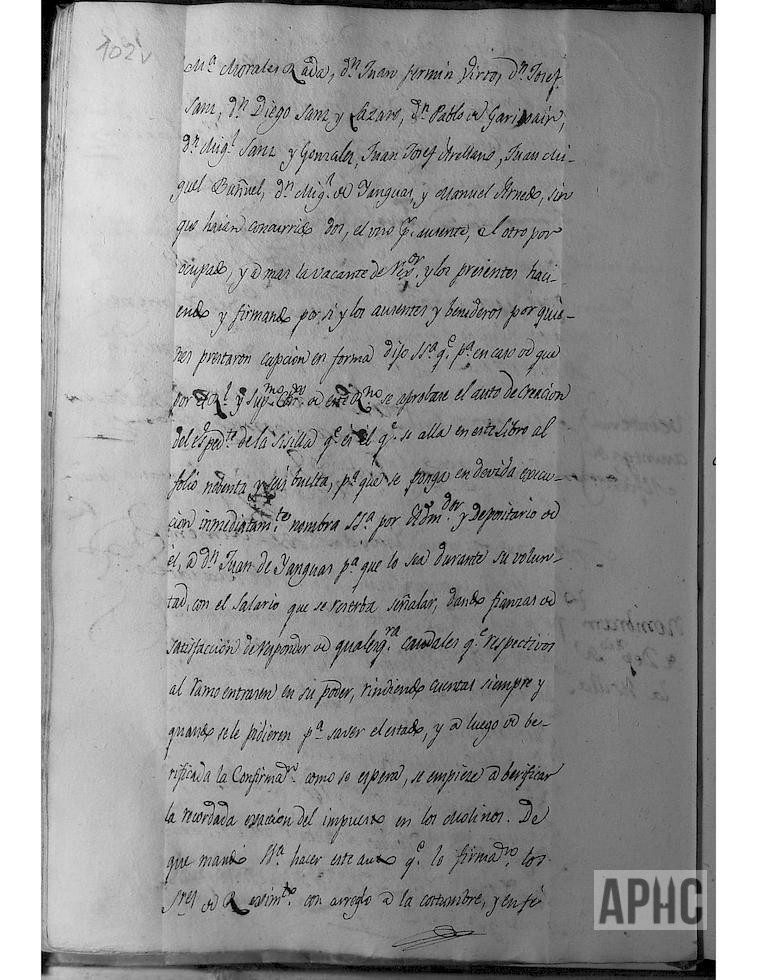 102v
M.ª Morales Rada, d.n Juan fermin Virto, d.n Josef
Sanz, d.n Diego Sanz y Lazaro, d.n Pablo de Garisoain,
d.n Mig.l Sanz y Gonzalez, Juan Josef Arellano, Juan Mi-
guel Buñuel, d.n Mig.l de Yanguas, y Manuel Arnedo, sin
que haien concurrido dos, el vno p.r ausente, el otro por
ocupado, y a mas la vacante de Rex.or y los presentes haci-
endo y firmando por si y los ausentes y benideros por quie-
nes prestaron capcion en forma dijo SS.ª q.e p.ª en caso de que
por el R.l y Sup.mo de este R.no se aprobase el auto de Creacion
del esped.te de la Sisilla q.e es el q.e se alla en este Libro al
folio nobenta y seis buelta, p.ª que se ponga en devida execu-
cion inmediatam.te nombra SS.ª por Adm.dor y Depositario de
el, a d.n Juan de Yanguas p.ª que lo sea durante su volun-
tad, con el Salario que se reserba señalar, dando fianzas de
satisfacción de responder de qualesq.ra caudales q.e respectivos
al ramo entrasen en su poder, rindiendo cuentas siempre y
quando se le pidieren p.ª saver el estado, y a luego de be-
rificada la Confirma.n como se espera, se empieze a berificar
la recordada exacción del impuesto en los Molinos. De
que mandó SS.ª hacer este auto q.e lo firma.ro los
S.res de Rexim.to con arreglo a la costumbre, y en fe
Nombram.
la Sisilla
APHC